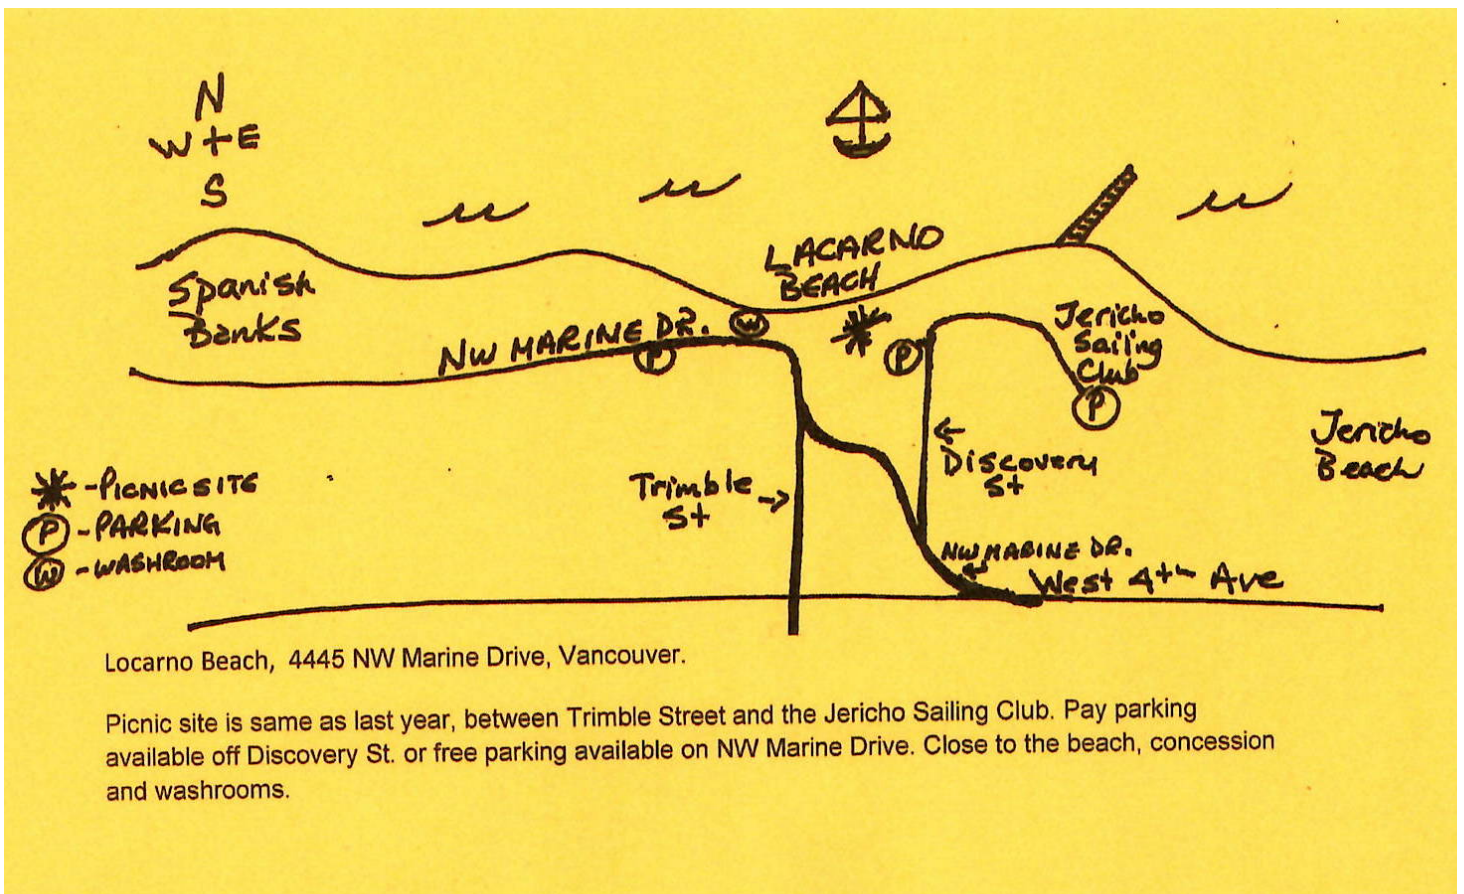 N
W + E
S
LACARNO
BEACH
Spanish
Banks
NW MARINE DR.
W
P
P
Jericho
Sailing
Club
P
Jericho
Beach
←
Discovery
St
Trimble →
St
-PICNIC SITE
P -PARKING
W -WASHROOM
NW MARINE DR.
West 4th Ave
Locarno Beach, 4445 NW Marine Drive, Vancouver.
Picnic site is same as last year, between Trimble Street and the Jericho Sailing Club. Pay parking
available off Discovery St. or free parking available on NW Marine Drive. Close to the beach, concession
and washrooms.